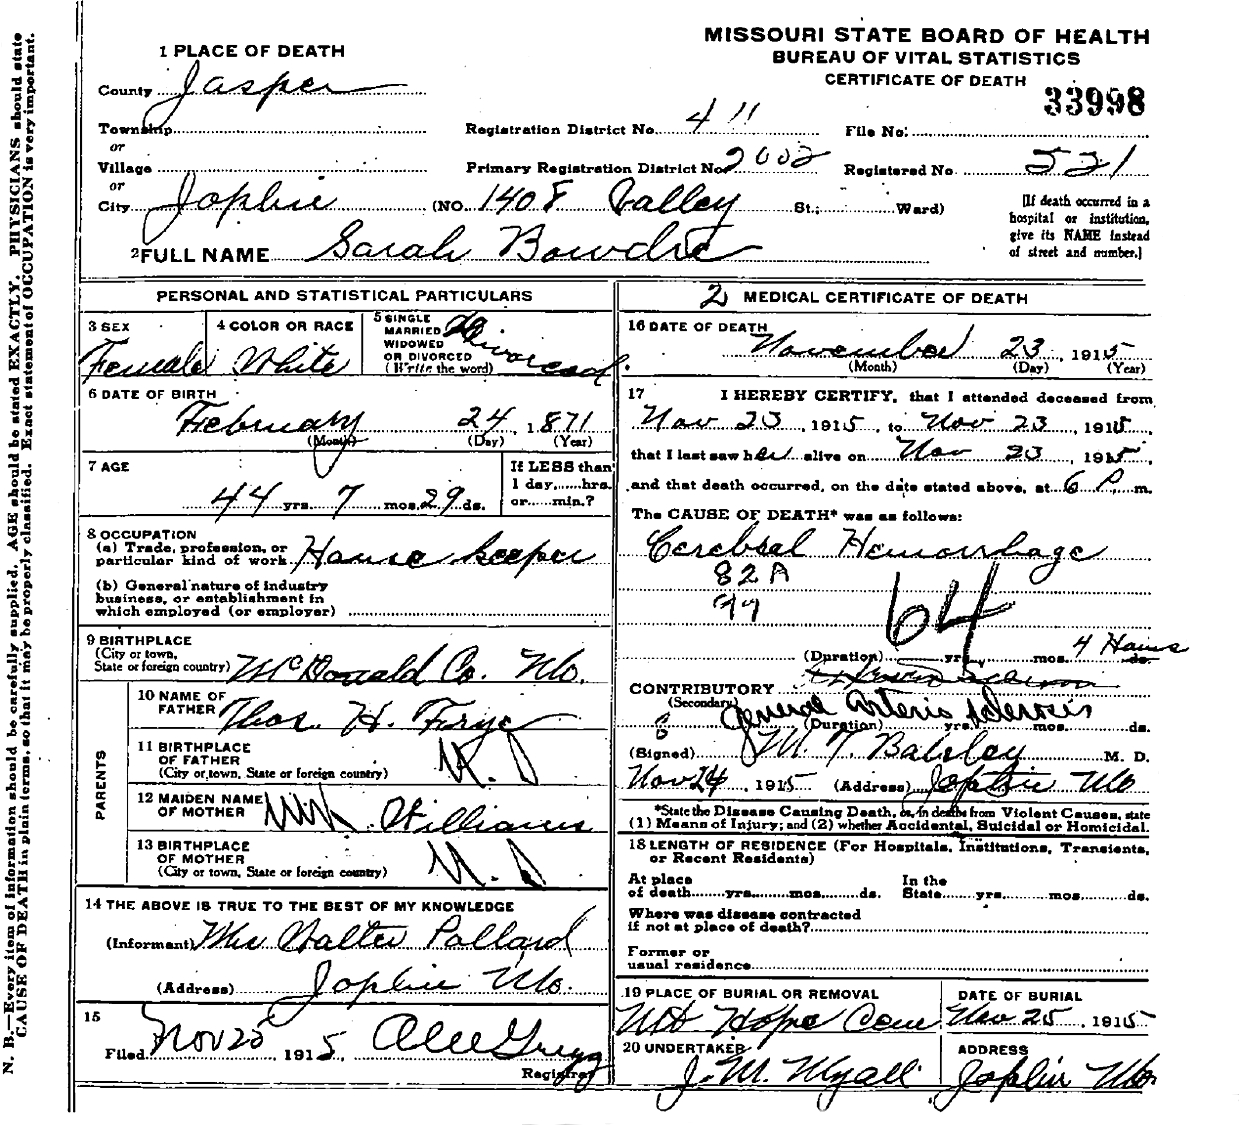 MISSOURI STATE BOARD OF HEALTH
BUREAU OF VITAL STATISTICS
CERTIFICATE OF DEATH
33998
1 PLACE OF DEATH
County Jasper
Township
or
Village
or
City Joplin (NO. 1408 Valley St.; Ward)
Registration District No. 411 File No.
Primary Registration District No. 2002 Registered No. 521
[If death occurred in a
hospital or institution,
give its NAME instead
of street and number.]
2 FULL NAME Sarah Bowdre
PERSONAL AND STATISTICAL PARTICULARS
3 SEX
Female
4 COLOR OR RACE
White
5 SINGLE
MARRIED
WIDOWED
OR DIVORCED
(Write the word)
Divorced
6 DATE OF BIRTH
February 24, 1871
(Month) (Day) (Year)
7 AGE
44 yrs. 7 mos. 29 ds.
If LESS than
1 day, hrs.
or min.?
8 OCCUPATION
(a) Trade, profession, or
particular kind of work House keeper
(b) General nature of industry
business, or establishment in
which employed (or employer)
9 BIRTHPLACE
(City or town,
State or foreign country) McDonald Co. Mo.
PARENTS
10 NAME OF
FATHER Thos. H.
11 BIRTHPLACE
OF FATHER
(City or town, State or foreign country)
12 MAIDEN NAME
OF MOTHER Williams
13 BIRTHPLACE
OF MOTHER
(City or town, State or foreign country)
14 THE ABOVE IS TRUE TO THE BEST OF MY KNOWLEDGE
(Informant) Mrs Walter Pollard
(Address) Joplin Mo.
15
Filed Nov 25 1915,
Registrar
2 MEDICAL CERTIFICATE OF DEATH
16 DATE OF DEATH
November 23, 1915
(Month) (Day) (Year)
17 I HEREBY CERTIFY, that I attended deceased from
Nov 23, 1915, to Nov 23, 1915,
that I last saw her alive on Nov 23, 1915,
and that death occurred, on the date stated above, at 6 P. m.
The CAUSE OF DEATH* was as follows:
Cerebral Hemorrhage
82A
64
(Duration) yrs. mos. 4 Hours ds.
CONTRIBUTORY
(Secondary) General Arterio Sclerosis
(Duration) yrs. mos. ds.
(Signed) M. T. M. D.
Nov 24, 1915 (Address) Joplin Mo
*State the Disease Causing Death, or, in deaths from Violent Causes, state
(1) Means of Injury; and (2) whether Accidental, Suicidal or Homicidal.
18 LENGTH OF RESIDENCE (For Hospitals, Institutions, Transients,
or Recent Residents)
At place
of death yrs. mos. ds.
In the
State yrs. mos. ds.
Where was disease contracted
if not at place of death?
Former or
usual residence
19 PLACE OF BURIAL OR REMOVAL
Mt Hope Cem
DATE OF BURIAL
Nov 25, 1915
20 UNDERTAKER
J. M. Myall
ADDRESS
Joplin Mo
N. B.—Every item of information should be carefully supplied. AGE should be stated EXACTLY. PHYSICIANS should state
CAUSE OF DEATH in plain terms, so that it may be properly classified. Exact statement of OCCUPATION is very important.